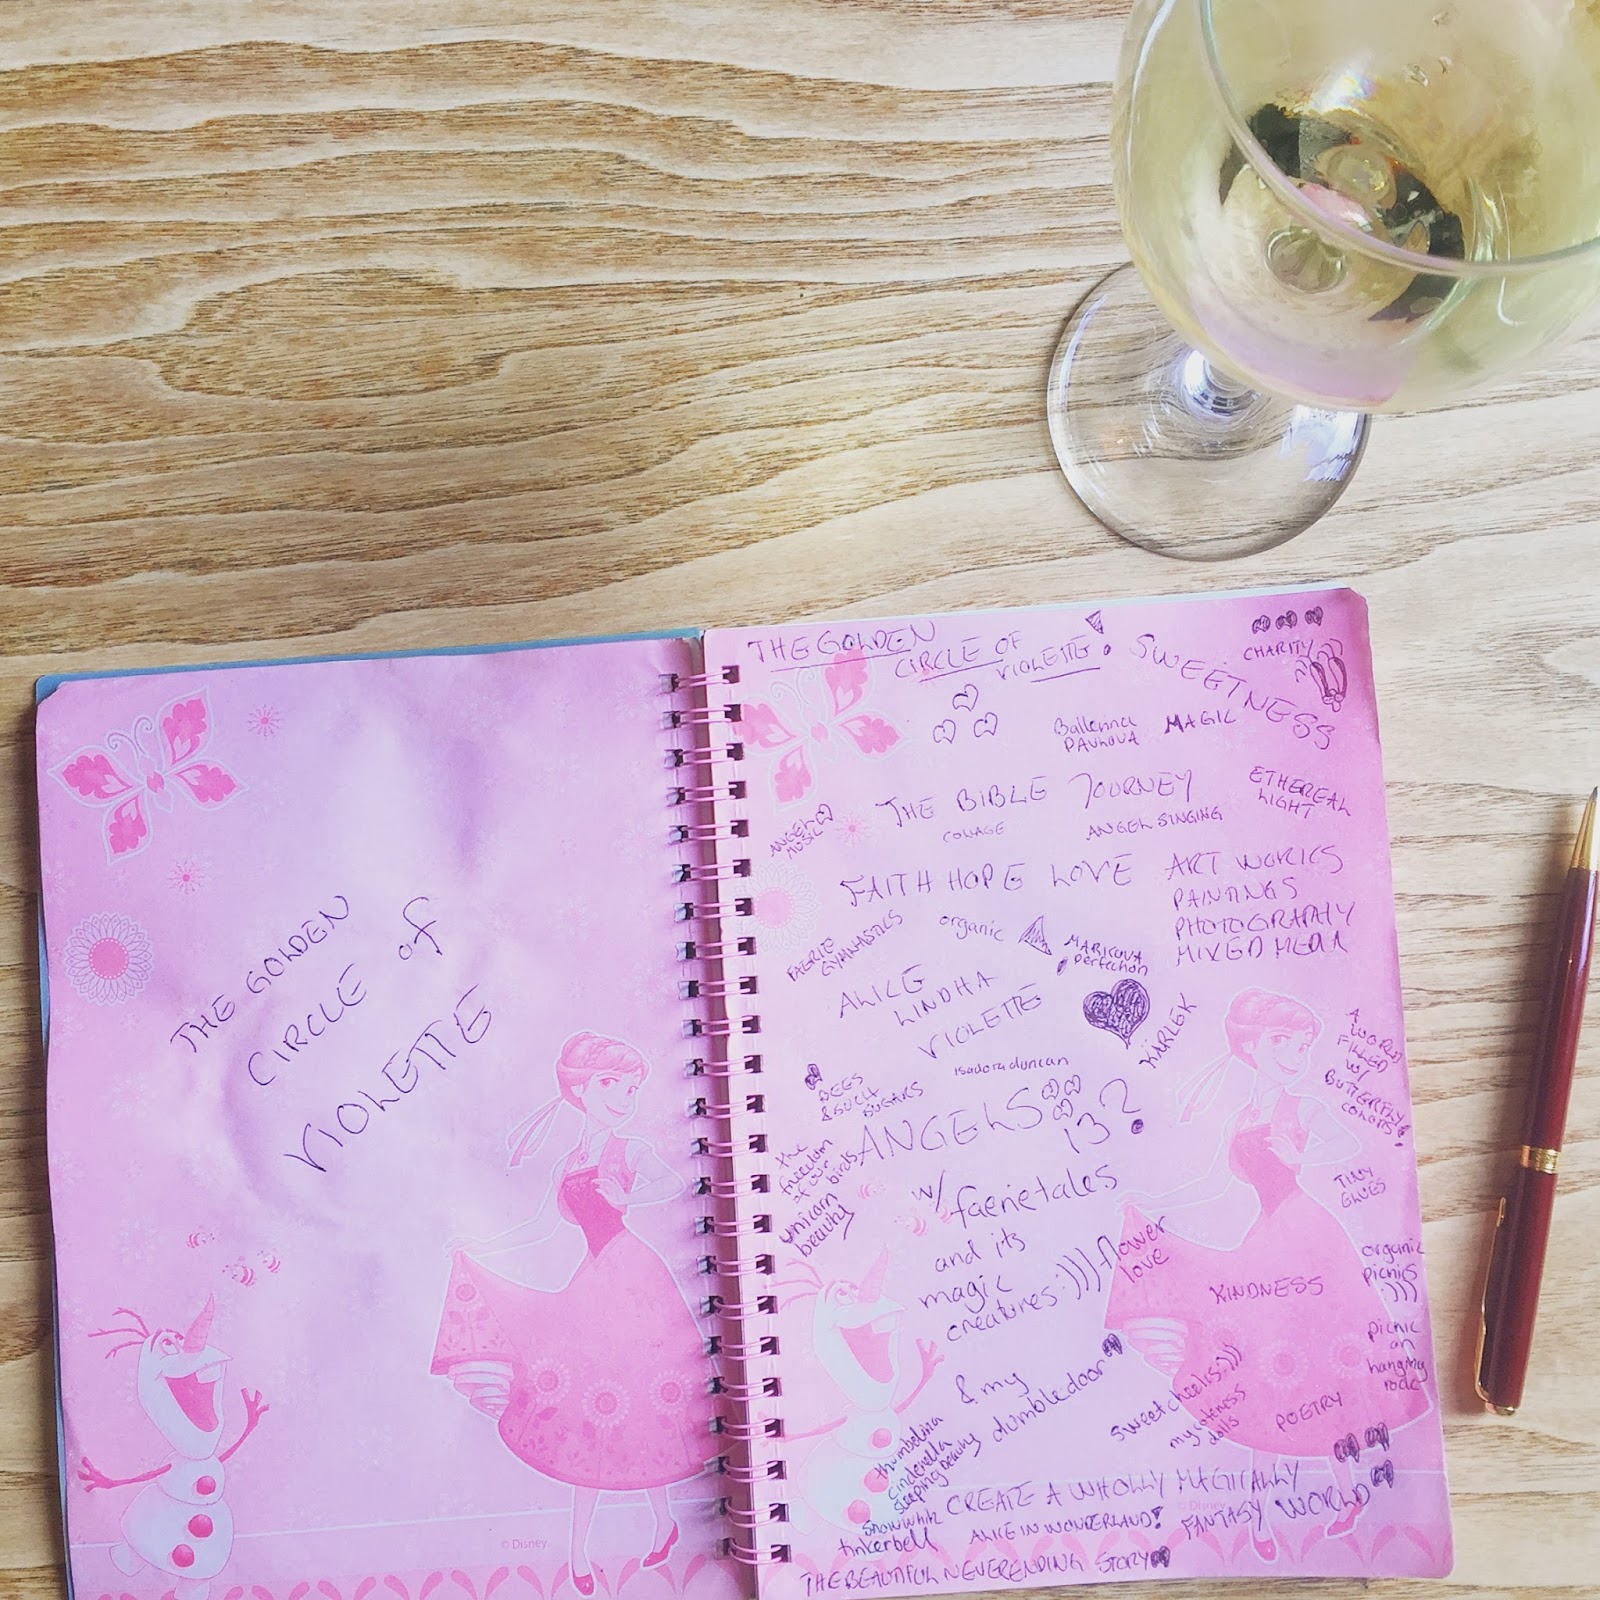 THE GOLDEN
CIRCLE of
VIOLETTE
© Disney
THE GOLDEN
CIRCLE OF
VIOLETTE!
SWEETNESS
CHARITY
Ballerina
PAVLOVA
MAGIC
ANGEL
MUSIC
THE BIBLE JOURNEY
COLLAGE
ANGEL SINGING
ETHEREAL
LIGHT
FAITH HOPE LOVE
ART WORKS
PAINTINGS
PHOTOGRAPHY
MIXED MEDIA
FAERIE
GYMNASTICS
organic
perfection
ALICE
LINDHA
VIOLETTE
KARLEK
isadora duncan
BEES
& SUCH
ANGELS
13?
the
freedom
of our
birds
unicorn
beauty
w/ faerietales
and its
magic
creatures:)))
flower
love
A
WORLD
FILLED
W/
BUTTERFLY
TINY
organic
picnics
:)))
KINDNESS
picnic
on
hanging
rock
& my
dumbledoor
sweet cheeks:)))
my cuteness
dolls
POETRY
thumbelina
cinderella
sleeping beauty
snow white
tinkerbell
CREATE A WHOLLY MAGICALLY
FANTASY WORLD
ALICE IN WONDERLAND!
© Disney
THE BEAUTIFUL NEVERENDING STORY